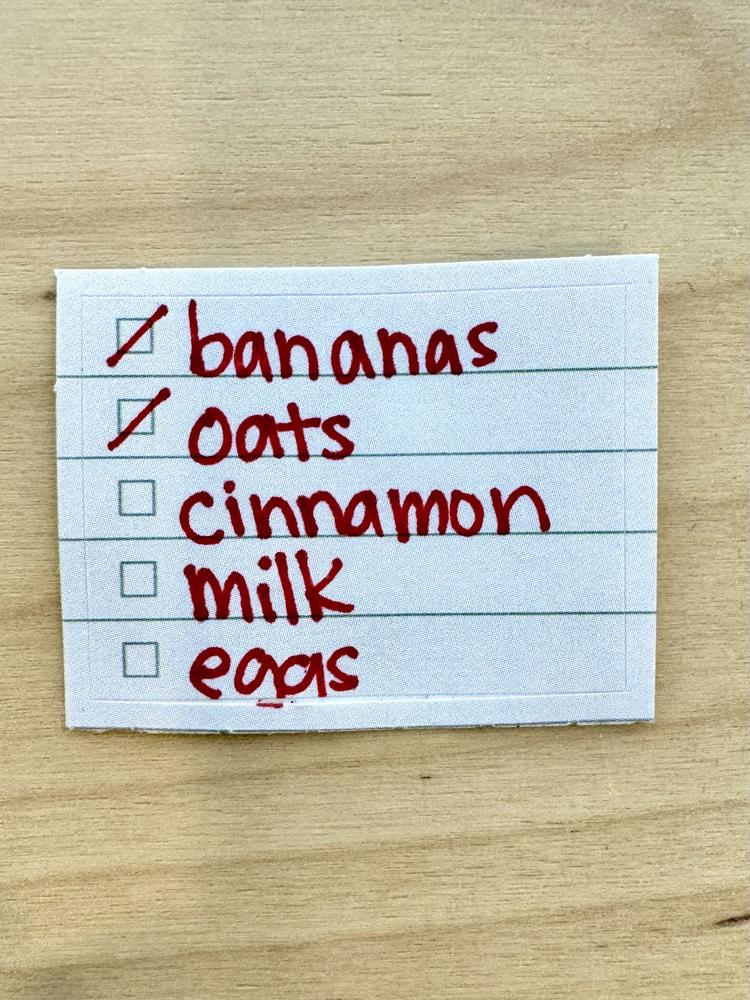 bananas
oats
cinnamon
milk
eggs